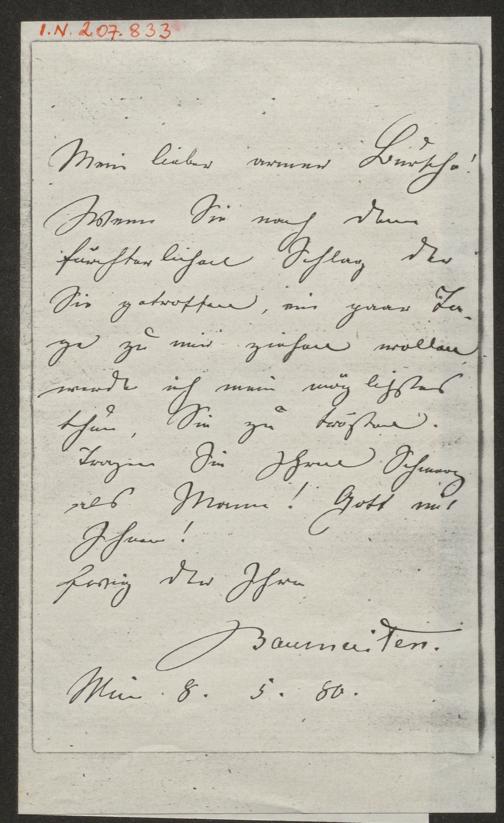 I.N. 207.833
Mein lieber armer Bursche!
Wenn Sie nach dem
fürchterlichen Schlag der
Sie getroffen, ein paar Ta-
ge zu mir ziehen wollen
werde ich mein möglichstes
thun, Sie zu trösten.
Tragen Sie Ihren Schmerz
als Mann! Gott mit
Ihnen!
Ewig der Ihre
Baumeister.
Wien 8. 5. 80.